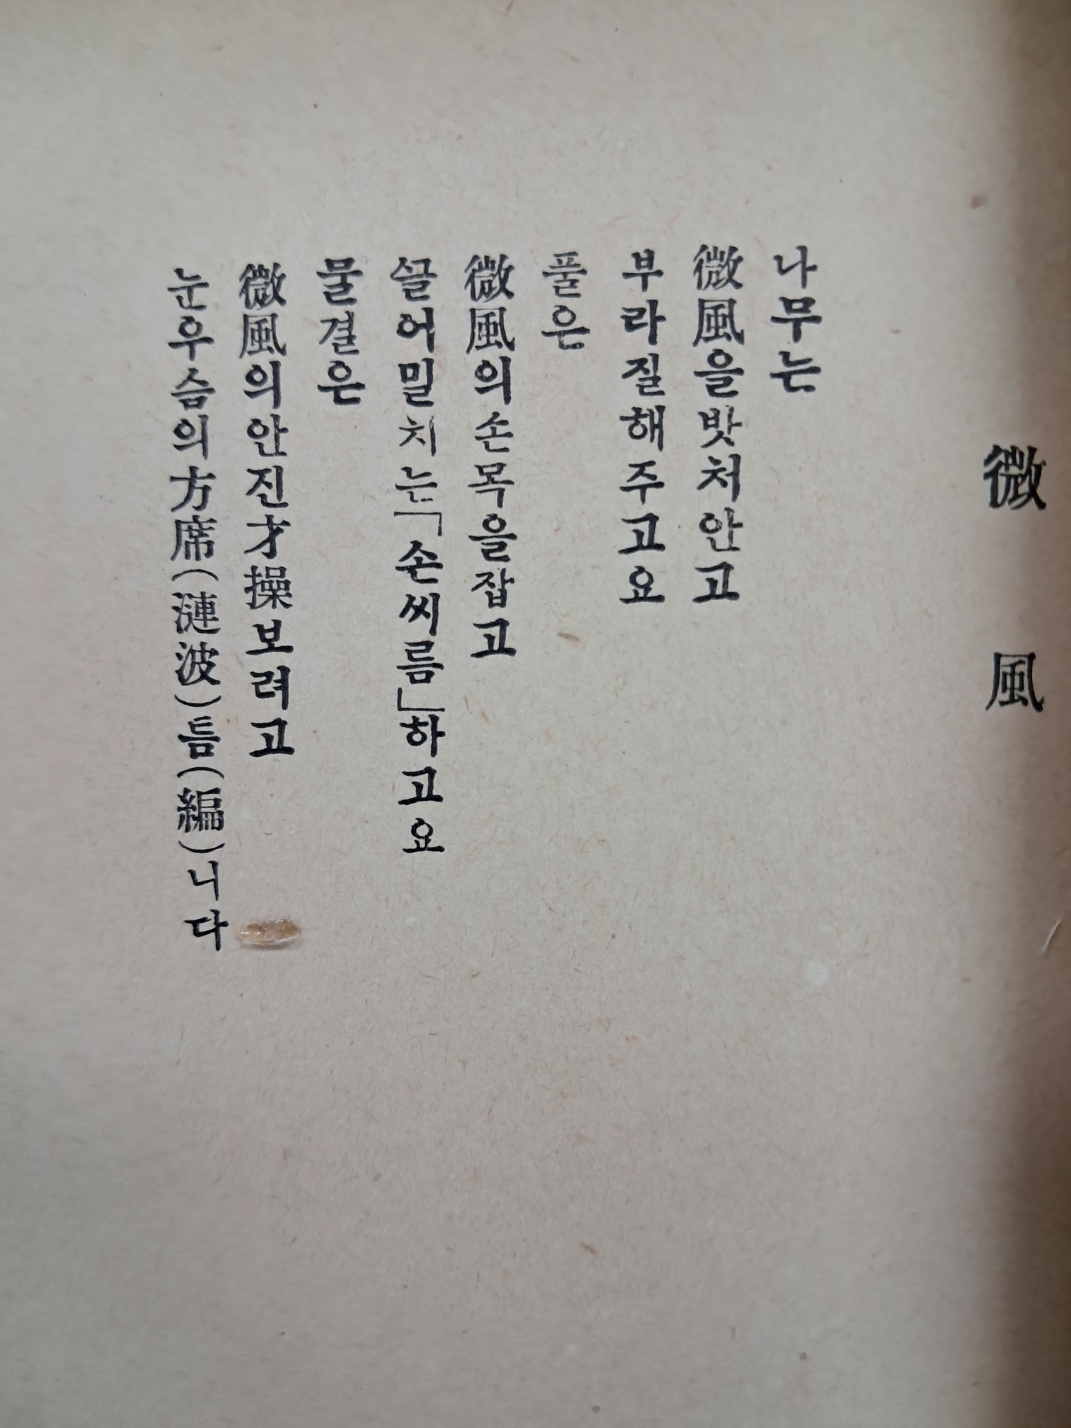 微風
나무는
微風을밧처안고
부라질해주고요
풀은
微風의손목을잡고
끌어밀치는「손씨름」하고요
물결은
微風의안진才操보려고
눈우슴의方席(漣波)틈(編)니다